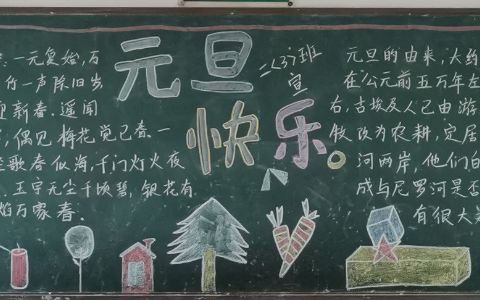 一元复始,万
竹一声除旧岁
迎新春.遥闻
,偶见梅花觉已春.一
歌春似海,千门灯火夜
.王宇无尘千顷碧,银花有
焰万家春.
元旦
快乐。
二(3)班
宣
元旦的由来,大约
在公元前五万年左
右,古埃及人已由游
牧改为农耕,定居
河两岸,他们的
成与尼罗河是否
有很大关